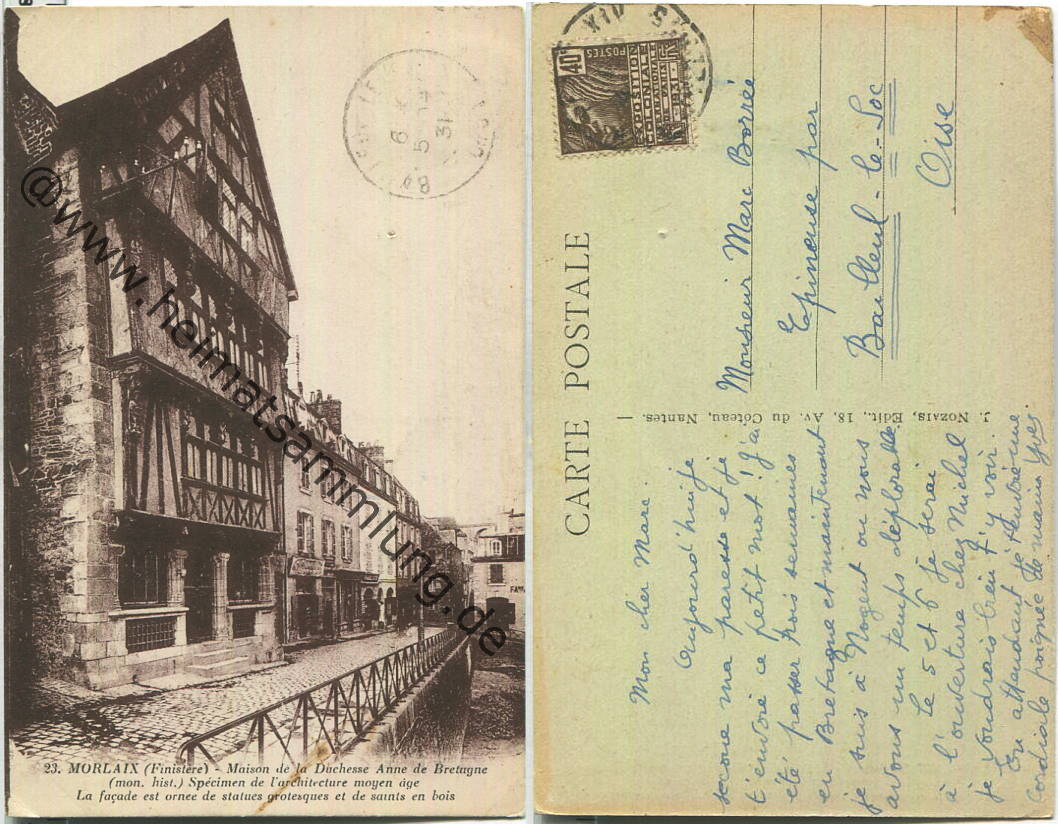 23. MORLAIX (Finistère) - Maison de la Duchesse Anne de Bretagne
(mon. hist.) Spécimen de l'architecture moyen âge
La façade est ornée de statues grotesques et de saints en bois
@www.heimatsammlung.de
6 - 14
5
31
CARTE POSTALE
J. Nozais, Edit., 18, Av. du Côteau, Nantes.
40c
POSTES
EXPOSITION
COLONIALE
PARIS
1931
Monsieur Marc Borrée
Epineuse par
Bailleul - le - Soc
Oise
Mon cher Marc.
Aujourd'hui je
secoue ma paresse et je
t'envoie ce petit mot ! J'ai
été passer trois semaines
en Bretagne et maintenant
je suis à Nogent ou nous
avons un temps déplorable.
Le 5 et 6 je serai
à l'ouverture chez Michel
je voudrais bien t'y voir.
En attendant je t'envoie une
cordiale poignée de mains Yves.